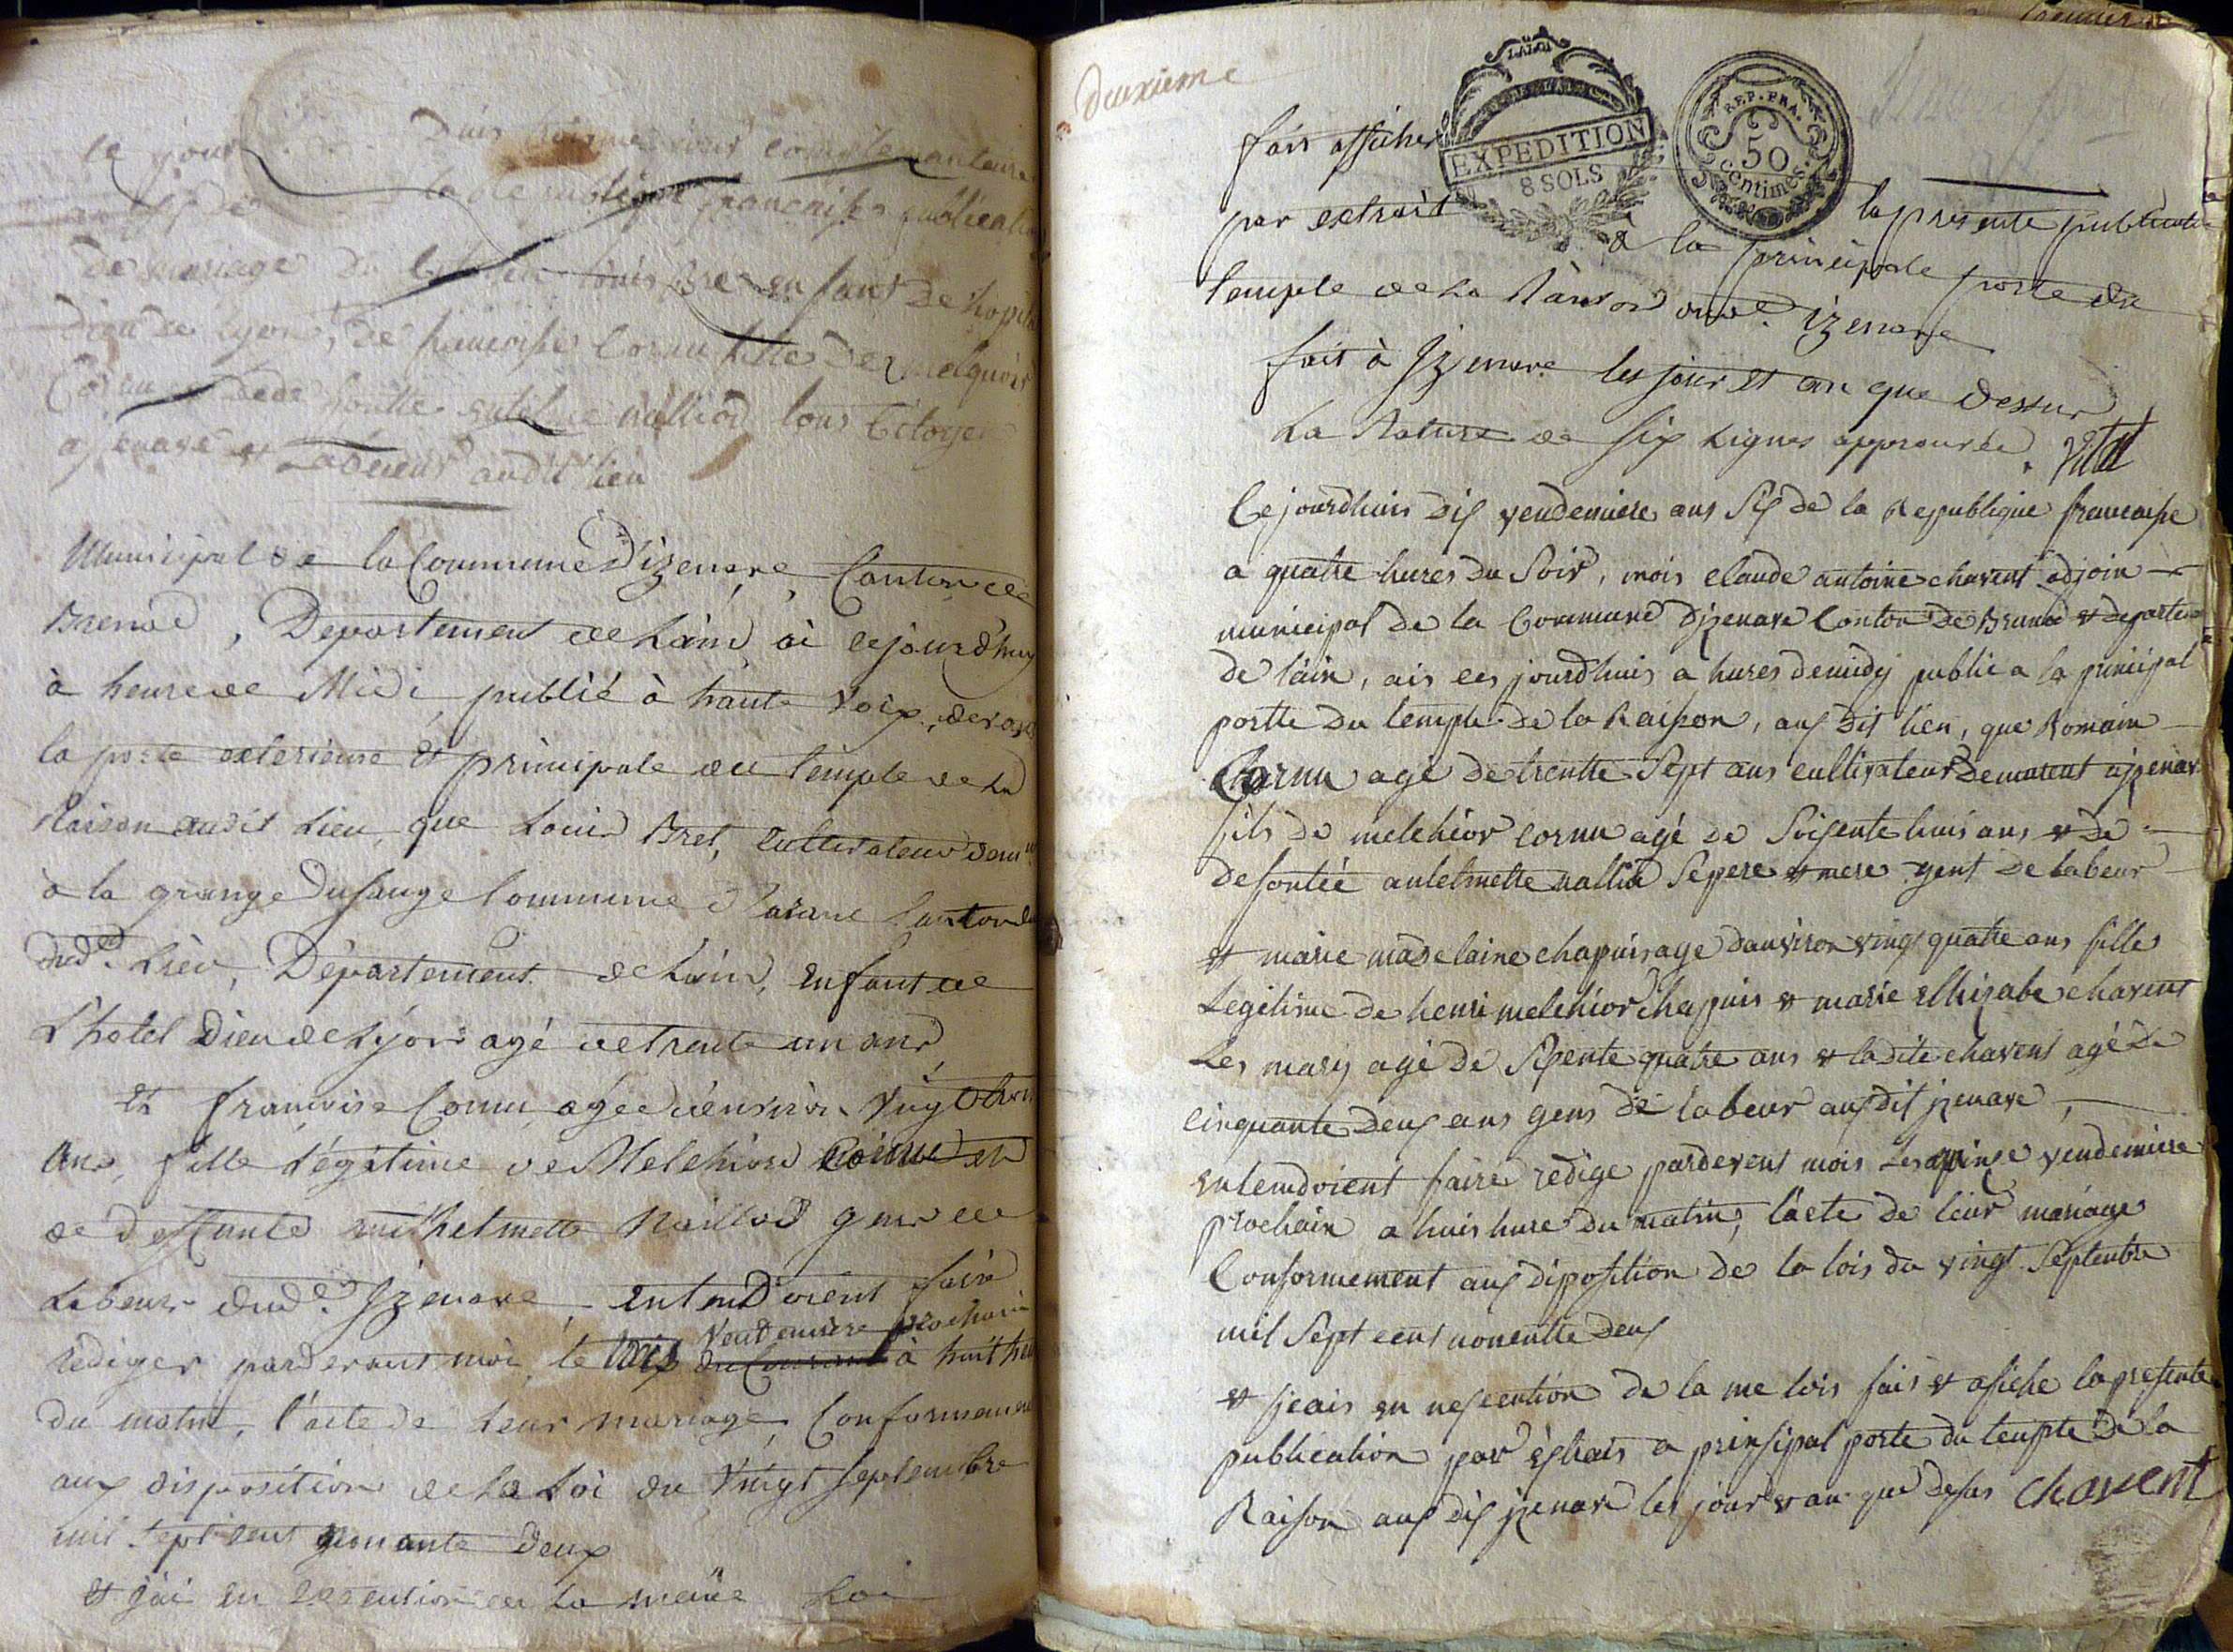 le jour
la Republique francaise publication
de mariage du Citoien louis Bret enfant de hopital
dieu de lyon, de francoise Cornu fille de melquior
Cornu
a jzenave et Labeur audit lieu
Municipal de la Commune d'izenave, Canton de
Brenod, Département de L'ain, ai cejourd'huy
à heure de Midi, publié à haute voix, devant
la porte exterieure et principale du temple de la
Raison audit Lieu, que Louis Bret, Cultivateur dem.t
à la grange du sauge Commune d'Aranc Canton du
dud.t Lieu, Département de L'ain, enfant de
L'hotel Dieu de Lyon agé de trente un ans
et francoise Cornu, agée d'environ vingt huit
Ans, fille légitime de Melchior Cornu et
de deffunte anthelmette Nalliod gens de
Labeur dud.t Jzenave, entendoient faire
rédiger pardevant moi, le dix du Courant vendemiere prochain à huit heures
du matin, l'acte de leur mariage, Conformement
aux disposition de la Loi du vingt septembre
mil sept cent nonante deux
et j'ai en execution de la même Loi
Deuxieme
LA LOI
EXPEDITION
8 SOLS
REP. FRA.
50
Centimes.
fais afficher
par extrait la presente publication
à la principale porte du
temple de la Raison aud.t izenave
fait à Jzenave les jour et an que dessus
La Rature de six Lignes approuvée.
Cejourdhuis dix vendemiere ans six de la Republique francaise
a quatre hures du Soir, mois claude antoine chavent adjoin
municipal de la Commune Djzenave Canton de Brunod et departem
de l'ain, ais ces jourdhuis a hures demidy public a la principal
portte du temple de la Raison, aux dit lien, que Romain
Cornu agé de trentte Sept ans cultivateur demeurent a jzenave
fils de melchior cornu agé de Soisente huis ans et de
defontée antelmette nallié Se pere et mere gent de labeur
et marie madelaine chapuis age danviron vingt quatre ans fille
Legitime de henri melchior chapuis et marie elhizabe chavent
Les mary agé de Sisente quatre ans et ladite chavent agé de
cinquante deux ans gens de labeur aux dit jzenave,
entendoient faire redige pardevent mois les quinse vendemiere
prochain a huis hure du matin, l'acte de leur mariage
Conformement aux diposition de la lois du vingt Septembre
mil Sept cent nonentte deux
et jeais en nesecution de la me lois fais et afiche la presente
publication par estrais a prinsipal porte du temple de la
Raison aux dis jzenave les jour et an que desus Chavent